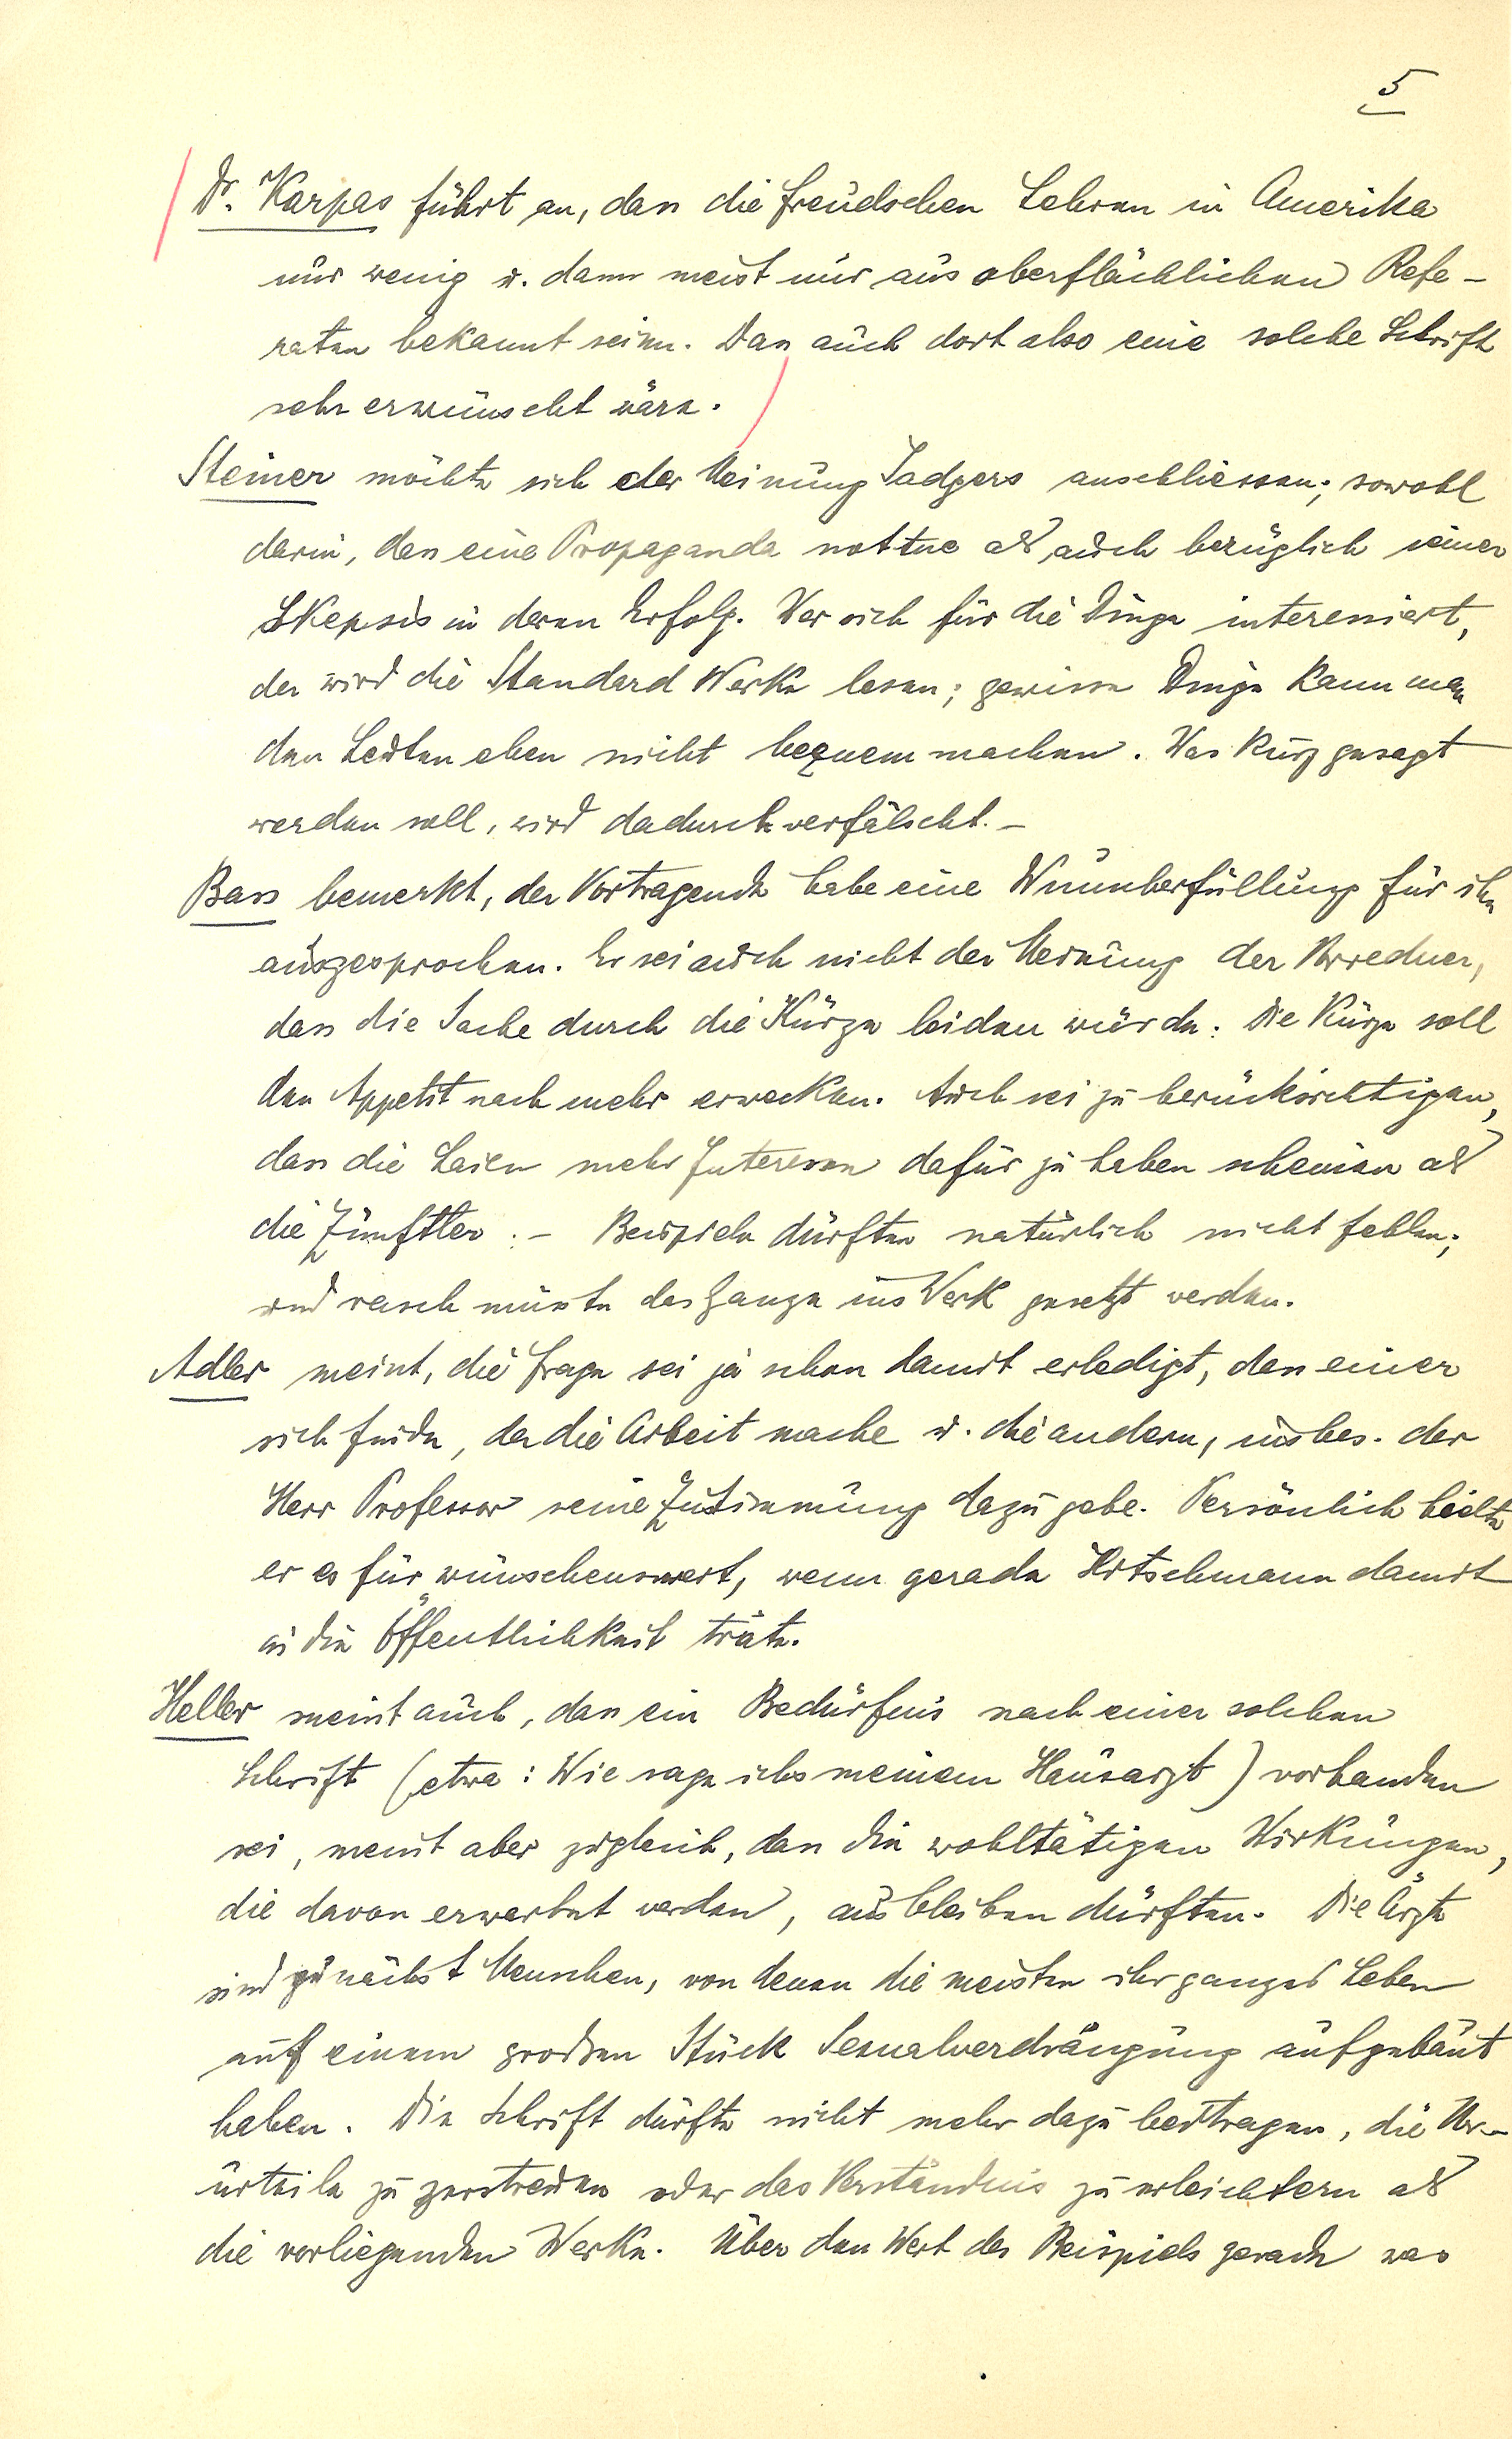 5
Dr. Karpas führt an, dass die Freudschen Lehren in Amerika
nur wenig u. dann meist nur aus oberflächlichen Refe-
raten bekannt seien. Dass auch dort also eine solche Schrift
sehr erwünscht wäre.
Steiner möchte sich der Meinung Sadgers anschliessen; sowohl
darin, dass eine Propaganda nottue als auch bezüglich seiner
Skepsis in deren Erfolg. Wer sich für die Dinge interessiert,
der wird die Standard Werke lesen; gewisse Dinge kann man
den Leuten eben nicht bequem machen. Was kurz gesagt
werden soll, wird dadurch verfälscht. –
Bass bemerkt, der Vortragende habe eine Wunscherfüllung für ihn
ausgesprochen. Er sei auch nicht der Meinung der Vorredner,
dass die Sache durch die Kürze leiden würde. Die Kürze soll
den Appetit nach mehr erwecken. Auch sei zu berücksichtigen,
dass die Laien mehr Interesse dafür zu haben scheinen als
die Zünftler. – Beispiele dürften natürlich nicht fehlen;
und rasch müsste das Ganze ins Werk gesetzt werden.
Adler meint, die Frage sei ja schon damit erledigt, dass einer
sich finde, der die Arbeit mache u. die andern, insbes. der
Herr Professor seine Zustimmung dazu gebe. Persönlich hielte
er es für wünschenswert, wenn gerade Hitschmann damit
in die Öffentlichkeit träte.
Heller meint auch, dass ein Bedürfnis nach einer solchen
Schrift (etwa: Wie sage ichs meinem Hausarzt) vorhanden
sei, meint aber zugleich, dass die wohltätigen Wirkungen,
die davon erwartet werden, ausbleiben dürften. Die Ärzte
sind zunächst Menschen, von denen die meisten ihr ganzes Leben
auf einem grossen Stück Sexualverdrängung aufgebaut
haben. Die Schrift dürfte nicht mehr dazu beitragen, die Vor-
urteile zu zerstreuen oder das Verständnis zu erleichtern als
die vorliegenden Werke. Über den Wert des Beispiels gerade was